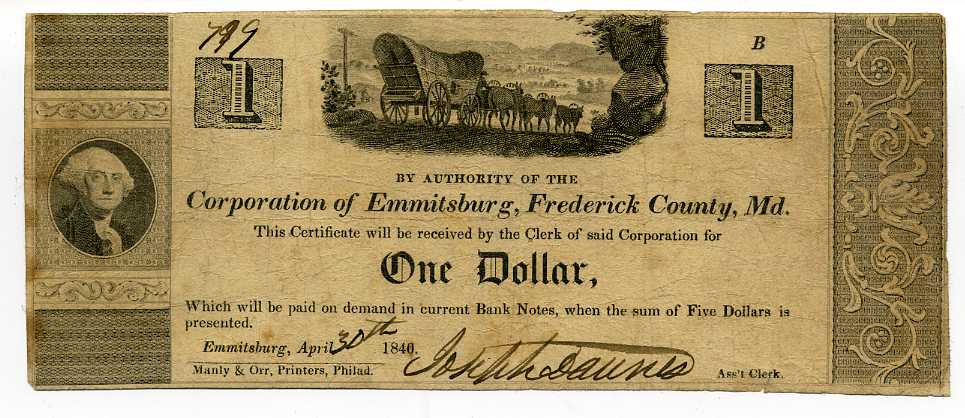 799
B
1
1
BY AUTHORITY OF THE
Corporation of Emmitsburg, Frederick County, Md.
This Certificate will be received by the Clerk of said Corporation for
One Dollar,
Which will be paid on demand in current Bank Notes, when the sum of Five Dollars is
presented.
Emmitsburg, April 30th 1840.
Manly & Orr, Printers, Philad. Joseph Ass't Clerk.